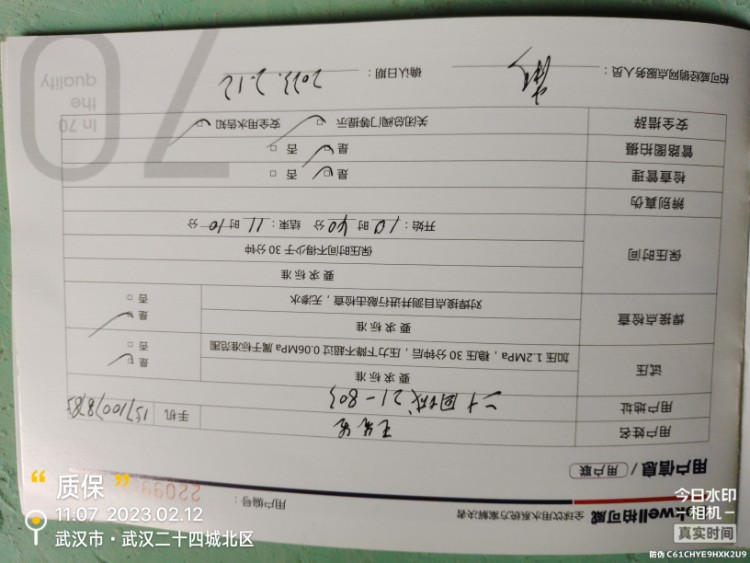 well柏可威 全球饮用水系统方案解决者
用户编号：
22099
用户信息 / 用户联
用户姓名
用户地址 二十四城21-803 手机
试压
要求标准
加压1.2MPa，稳压30分钟后，压力下降不超过0.06MPa属于标准范围
是
否
焊接点检查
要求标准
对焊接点目测并进行敲击检查，无渗水
是
否
保压时间
要求标准
保压时间不得少于30分钟
开始：10时40分 结束：11时10分
辨别真伪
检查管理 是 否
管路图拍摄 是 否
安全措辞 关闭总阀门等提示 安全用水告知
柏可威经销网点服务人员： 确认日期：2023.2.12
In 70
the
quality
70
“质保”
11:07 2023.02.12
武汉市·武汉二十四城北区
今日水印
相机
真实时间
防伪 C61CHYE9HXK2U9